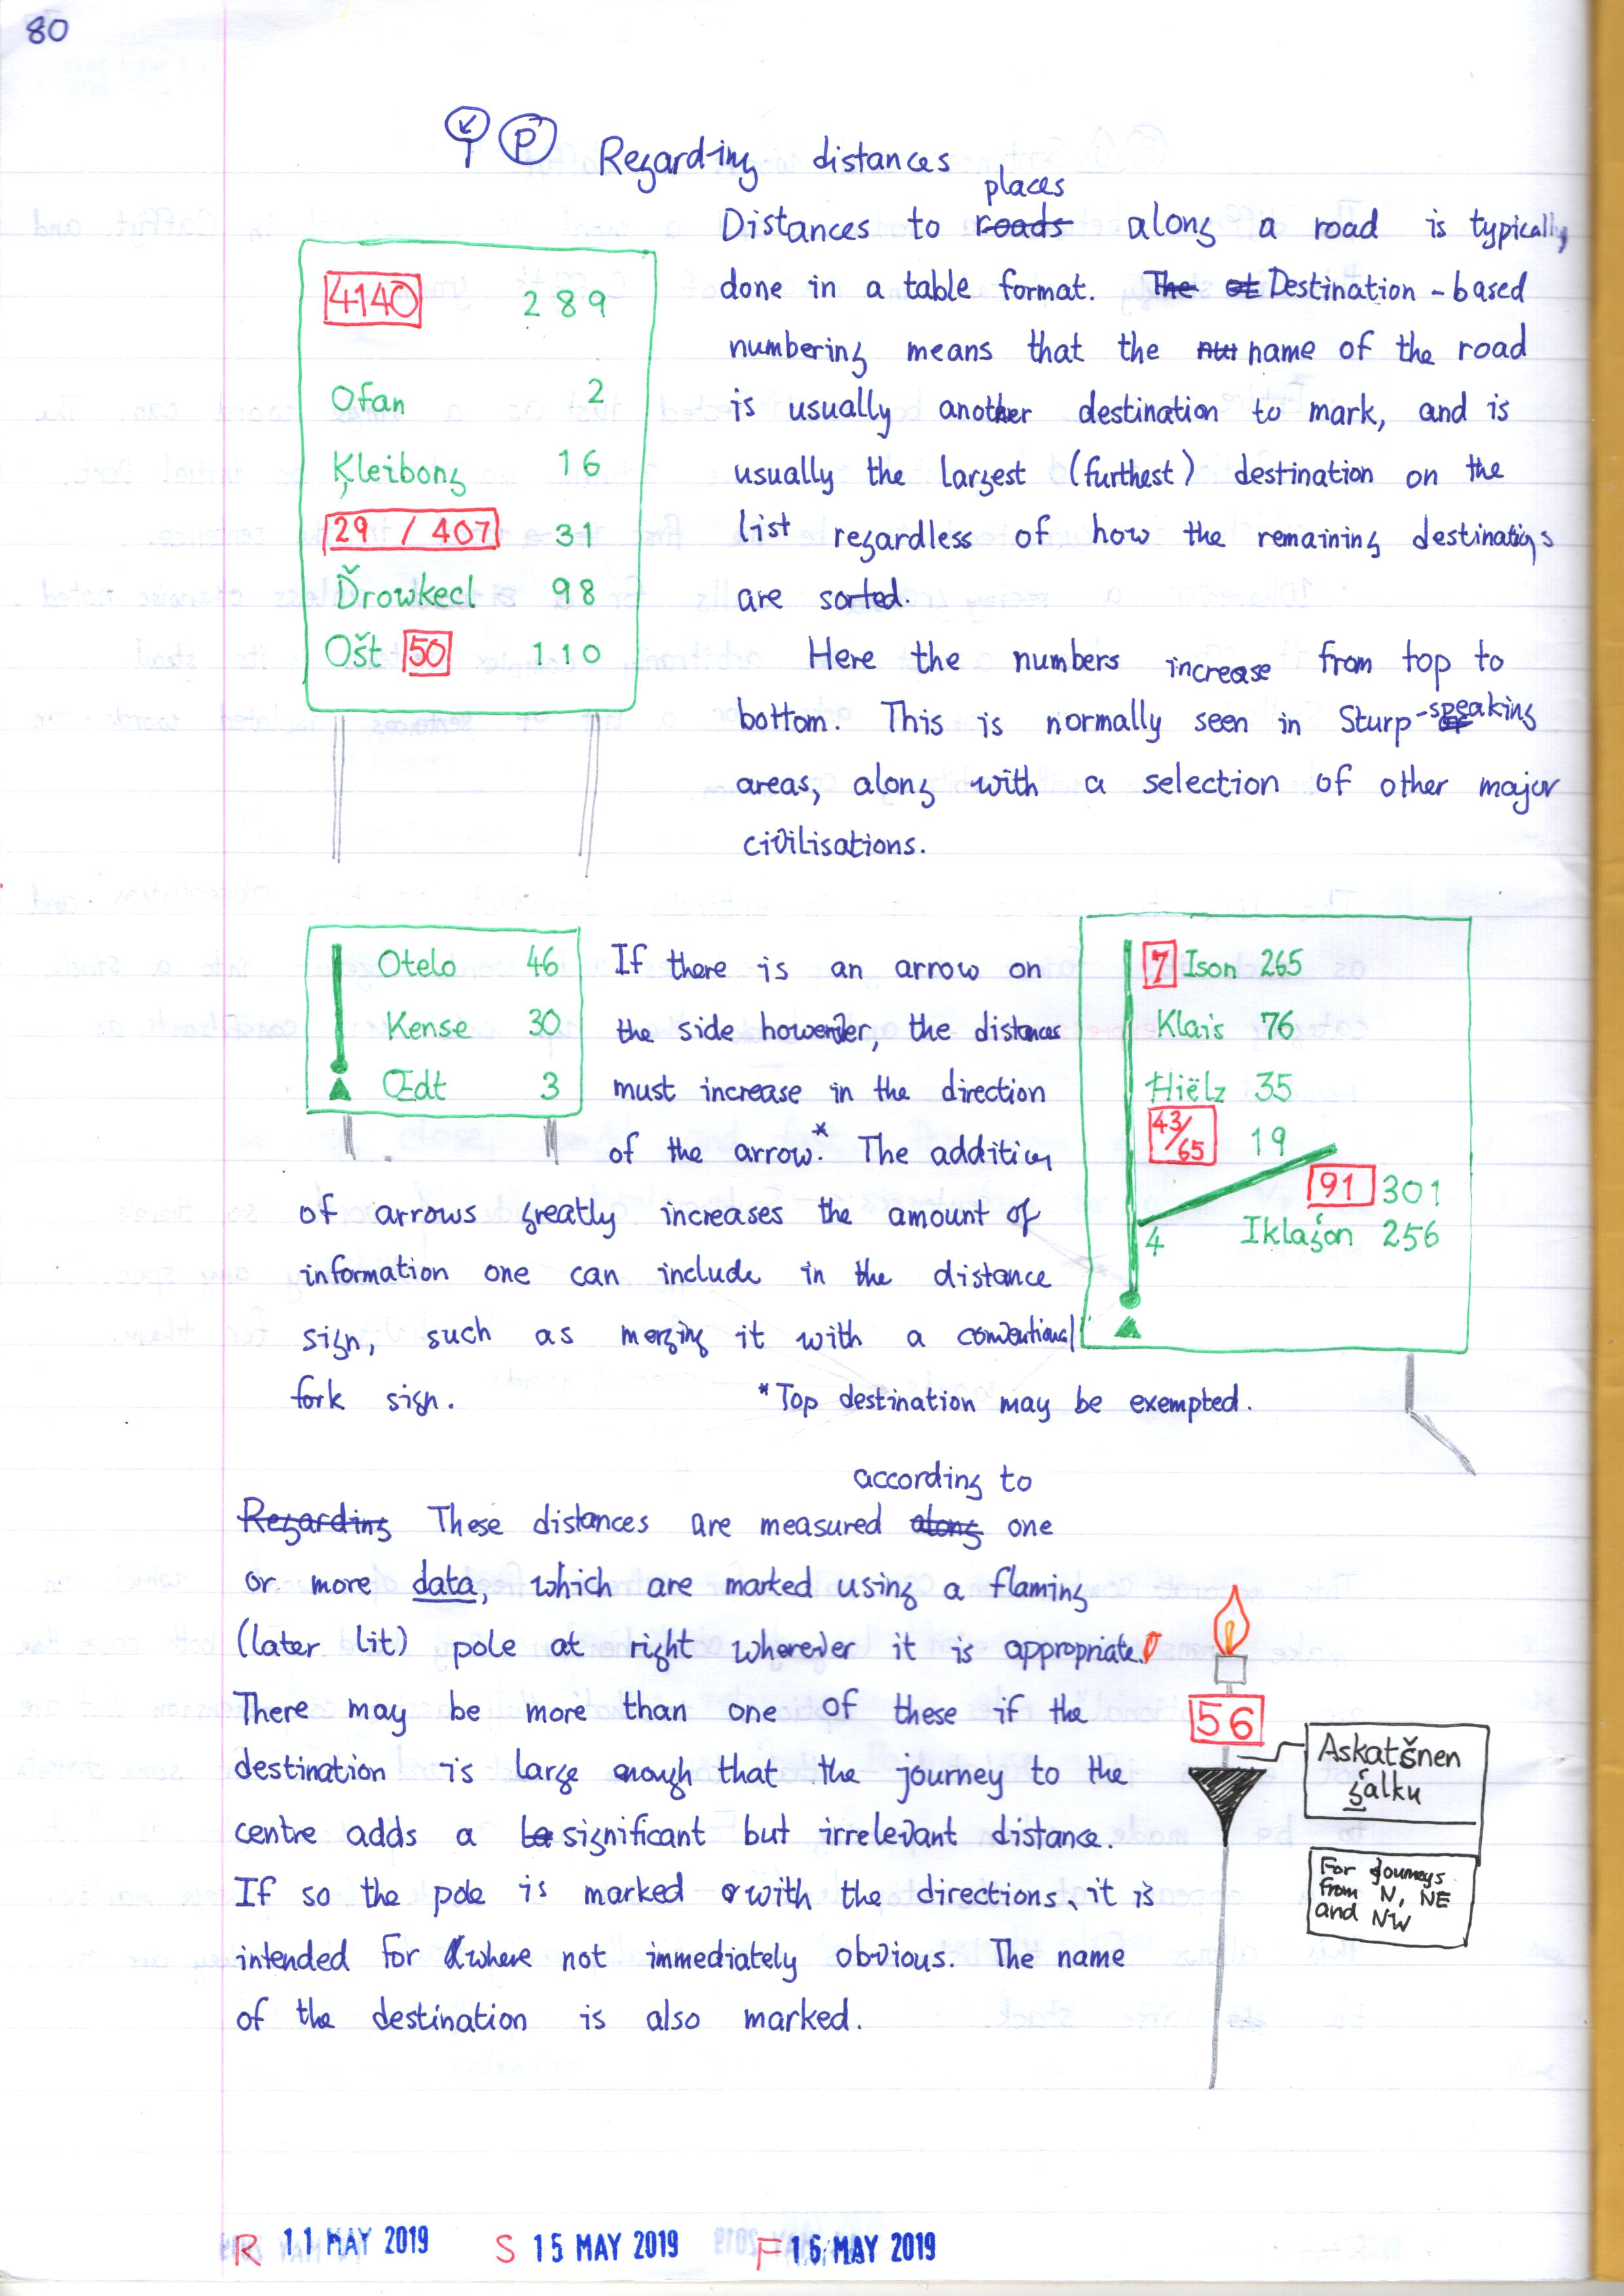 80
P Regarding distances
places
Distances to roads along a road is typically
done in a table format. The Destination-based
numbering means that the nu name of the road
is usually another destination to mark, and is
usually the largest (furthest) destination on the
list regardless of how the remaining destinations
are sorted.
Here the numbers increase from top to
bottom. This is normally seen in Sturp-speaking
areas, along with a selection of other major
civilisations.
4140 289
Ofan 2
Ķleibong 16
29 / 407 31
Ďrowkecl 98
Ošt 50 110
Otelo 46
Kense 30
Œdt 3
If there is an arrow on
the side however, the distances
must increase in the direction
of the arrow.* The addition
of arrows greatly increases the amount of
information one can include in the distance
sign, such as merging it with a conventional
fork sign.
*Top destination may be exempted.
7 Ison 265
Klais 76
Hiëlz 35
43/65 19
91 301
4 Iklaġon 256
according to
Regarding These distances are measured along one
or more data, which are marked using a flaming
(later lit) pole at right wherever it is appropriate.
There may be more than one of these if the
destination is large enough that the journey to the
centre adds a significant but irrelevant distance.
If so the pole is marked with the directions it is
intended for where not immediately obvious. The name
of the destination is also marked.
56
Askatšnen
ġalku
For journeys
from N, NE
and NW
R 11 MAY 2019 S 15 MAY 2019 F 15 MAY 2019